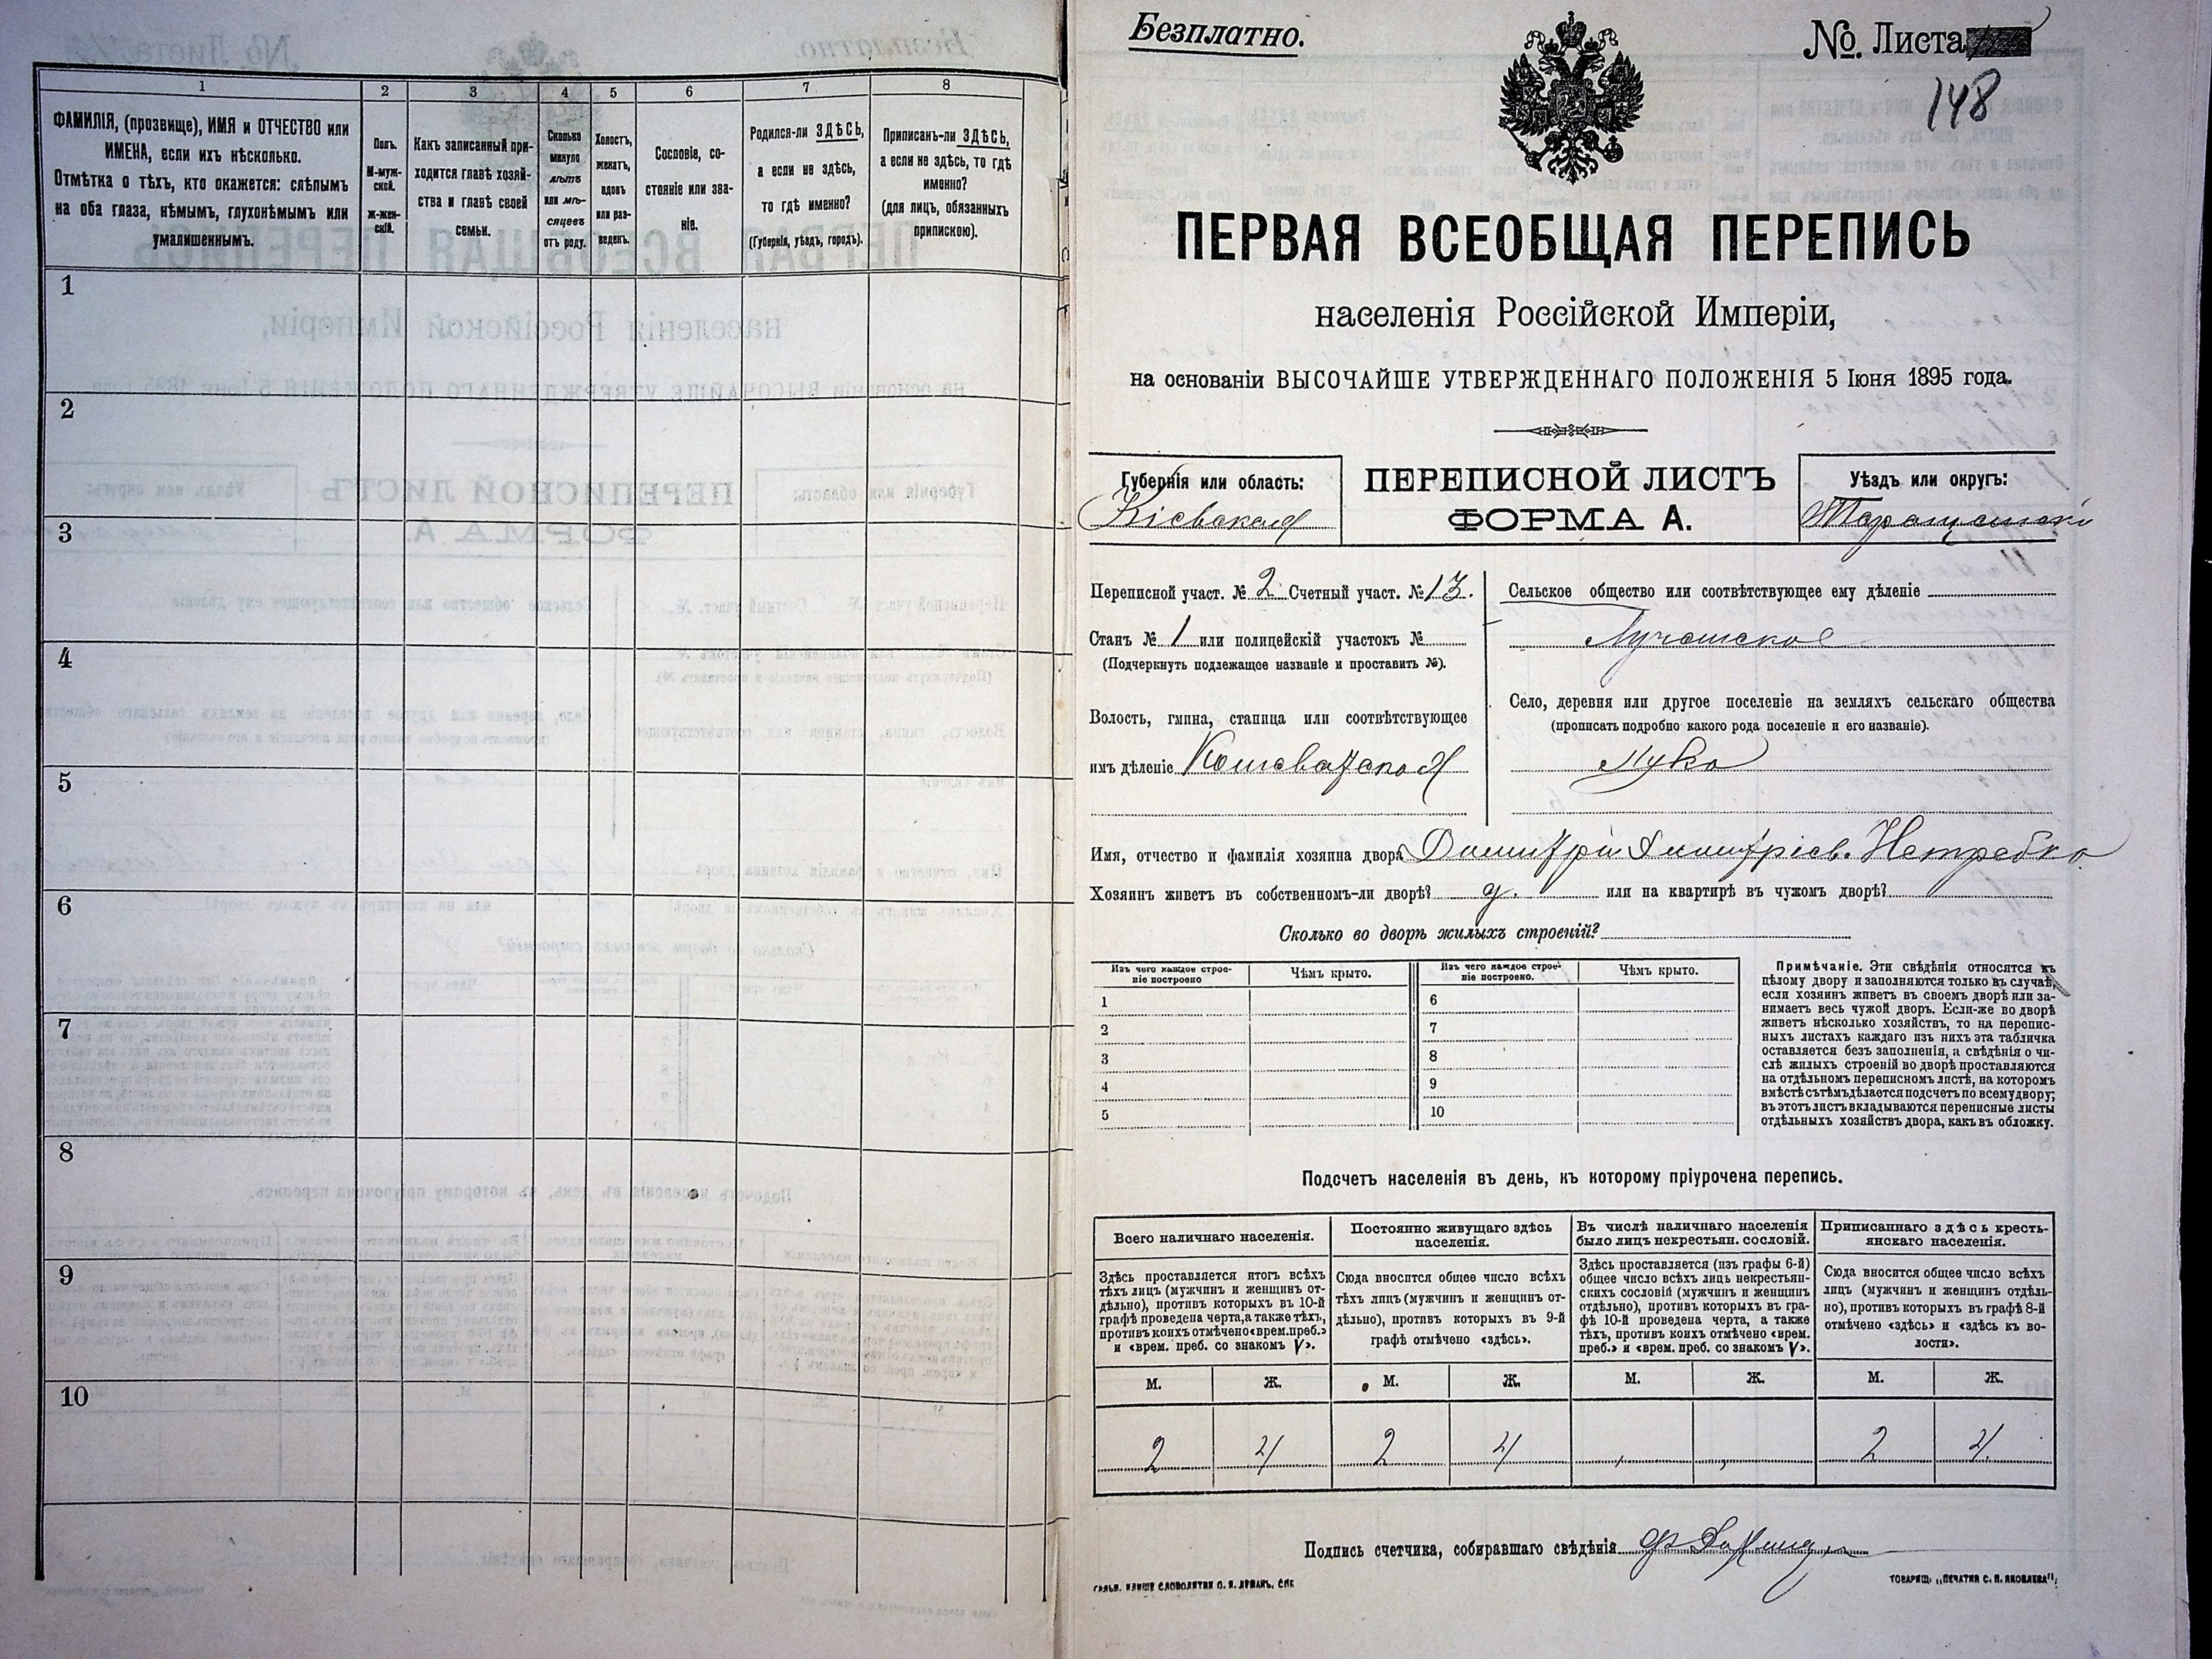 1 2 3 4 5 6 7 8
ФАМИЛІЯ, (прозвище), ИМЯ и ОТЧЕСТВО или
ИМЕНА, если ихъ нѣсколько.
Отмѣтка о тѣхъ, кто окажется: слѣпымъ
на оба глаза, нѣмымъ, глухонѣмымъ или
умалишеннымъ.
Полъ.
М-муж-
ской.
ж-жен-
скій.
Какъ записанный при-
ходится главѣ хозяй-
ства и главѣ своей
семьи.
Сколько
минуло
лѣтъ
или мѣ-
сяцевъ
отъ роду.
Холостъ,
женатъ,
вдовъ
или раз-
веденъ.
Сословіе, со-
стояніе или зва-
ніе.
Родился-ли ЗДѢСЬ,
а если не здѣсь,
то гдѣ именно?
(Губернія, уѣздъ, городъ).
Приписанъ-ли ЗДѢСЬ,
а если не здѣсь, то гдѣ
именно?
(для лицъ, обязанныхъ
припискою).
1
2
3
4
5
6
7
8
9
10
Безплатно.
№ Листа
148
ПЕРВАЯ ВСЕОБЩАЯ ПЕРЕПИСЬ
населенія Россійской Имперіи,
на основаніи ВЫСОЧАЙШЕ УТВЕРЖДЕННАГО ПОЛОЖЕНІЯ 5 Іюня 1895 года.
Губернія или область:
Кіевская
ПЕРЕПИСНОЙ ЛИСТЪ
ФОРМА А.
Уѣздъ или округъ:
Таращанскій
Переписной участ. № 2 Счетный участ. № 13.
Станъ № 1 или полицейскій участокъ №
(Подчеркнуть подлежащее названіе и проставить №).
Волость, гмина, станица или соотвѣтствующее
имъ дѣленіе Кошеватская
Сельское общество или соотвѣтствующее ему дѣленіе
Лучанское
Село, деревня или другое поселеніе на земляхъ сельскаго общества
(прописать подробно какого рода поселеніе и его названіе).
Лука
Имя, отчество и фамилія хозяина двора Димитрій Димитріев. Нетребка
Хозяинъ живетъ въ собственномъ-ли дворѣ? д. или на квартирѣ въ чужомъ дворѣ?
Сколько во дворѣ жилыхъ строеній?
Изъ чего каждое строе-
ніе построено
Чѣмъ крыто.
Изъ чего каждое строе-
ніе построено.
Чѣмъ крыто.
1 6
2 7
3 8
4 9
5 10
Примѣчаніе. Эти свѣдѣнія относятся къ
цѣлому двору и заполняются только въ случаѣ,
если хозяинъ живетъ въ своемъ дворѣ или за-
нимаетъ весь чужой дворъ. Если-же во дворѣ
живетъ нѣсколько хозяйствъ, то на перепис-
ныхъ листахъ каждаго изъ нихъ эта табличка
оставляется безъ заполненія, а свѣдѣнія о чи-
слѣ жилыхъ строеній во дворѣ проставляются
на отдѣльномъ переписномъ листѣ, на которомъ
вмѣстѣ съ тѣмъ дѣлается подсчетъ по всему двору;
въ этотъ листъ вкладываются переписные листы
отдѣльныхъ хозяйствъ двора, какъ въ обложку.
Подсчетъ населенія въ день, къ которому пріурочена перепись.
Всего наличнаго населенія.
Здѣсь проставляется итогъ всѣхъ
тѣхъ лицъ (мужчинъ и женщинъ от-
дѣльно), противъ которыхъ въ 10-й
графѣ проведена черта, а также тѣхъ,
противъ коихъ отмѣчено «врем. преб.»
и «врем. преб. со знакомъ V».
Постоянно живущаго здѣсь
населенія.
Сюда вносится общее число всѣхъ
тѣхъ лицъ (мужчинъ и женщинъ от-
дѣльно), противъ которыхъ въ 9-й
графѣ отмѣчено «здѣсь».
Въ числѣ наличнаго населенія
было лицъ некрестьян. сословій.
Здѣсь проставляется (изъ графы 6-й)
общее число всѣхъ лицъ некрестьян-
скихъ сословій (мужчинъ и женщинъ
отдѣльно), противъ которыхъ въ гра-
фѣ 10-й проведена черта, а также
тѣхъ, противъ коихъ отмѣчено «врем.
преб.» и «врем. преб. со знакомъ V».
Приписаннаго здѣсь кресть-
янскаго населенія.
Сюда вносится общее число всѣхъ
лицъ (мужчинъ и женщинъ отдѣль-
но), противъ которыхъ въ графѣ 8-й
отмѣчено «здѣсь» и «здѣсь къ во-
лости».
М. Ж. М. Ж. М. Ж. М. Ж.
2 4 2 4 , , 2 4
Подпись счетчика, собиравшаго свѣдѣнія
СЛОВОЛИТНИ О. И. ЛЕМАНЪ, СПБ
ТОВАРИЩ. „ПЕЧАТНЯ С. П. ЯКОВЛЕВА".